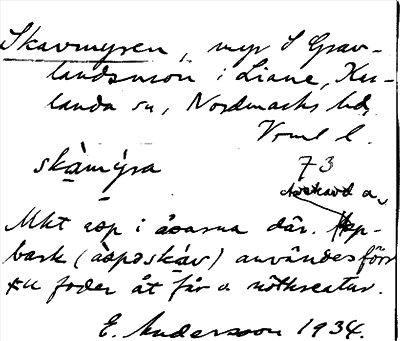 Skavmyren, myr S Grav-
landsmon i Liane, Ku-
landa sn, Nordmarks hd,
Vrml l.
skàmýra 73
Avskavd a
Mkt asp i åsarna där. Asp-
bark (àspǝskáv) användes förr
till foder åt får o nötkreatur.
E. Andersson 1934.